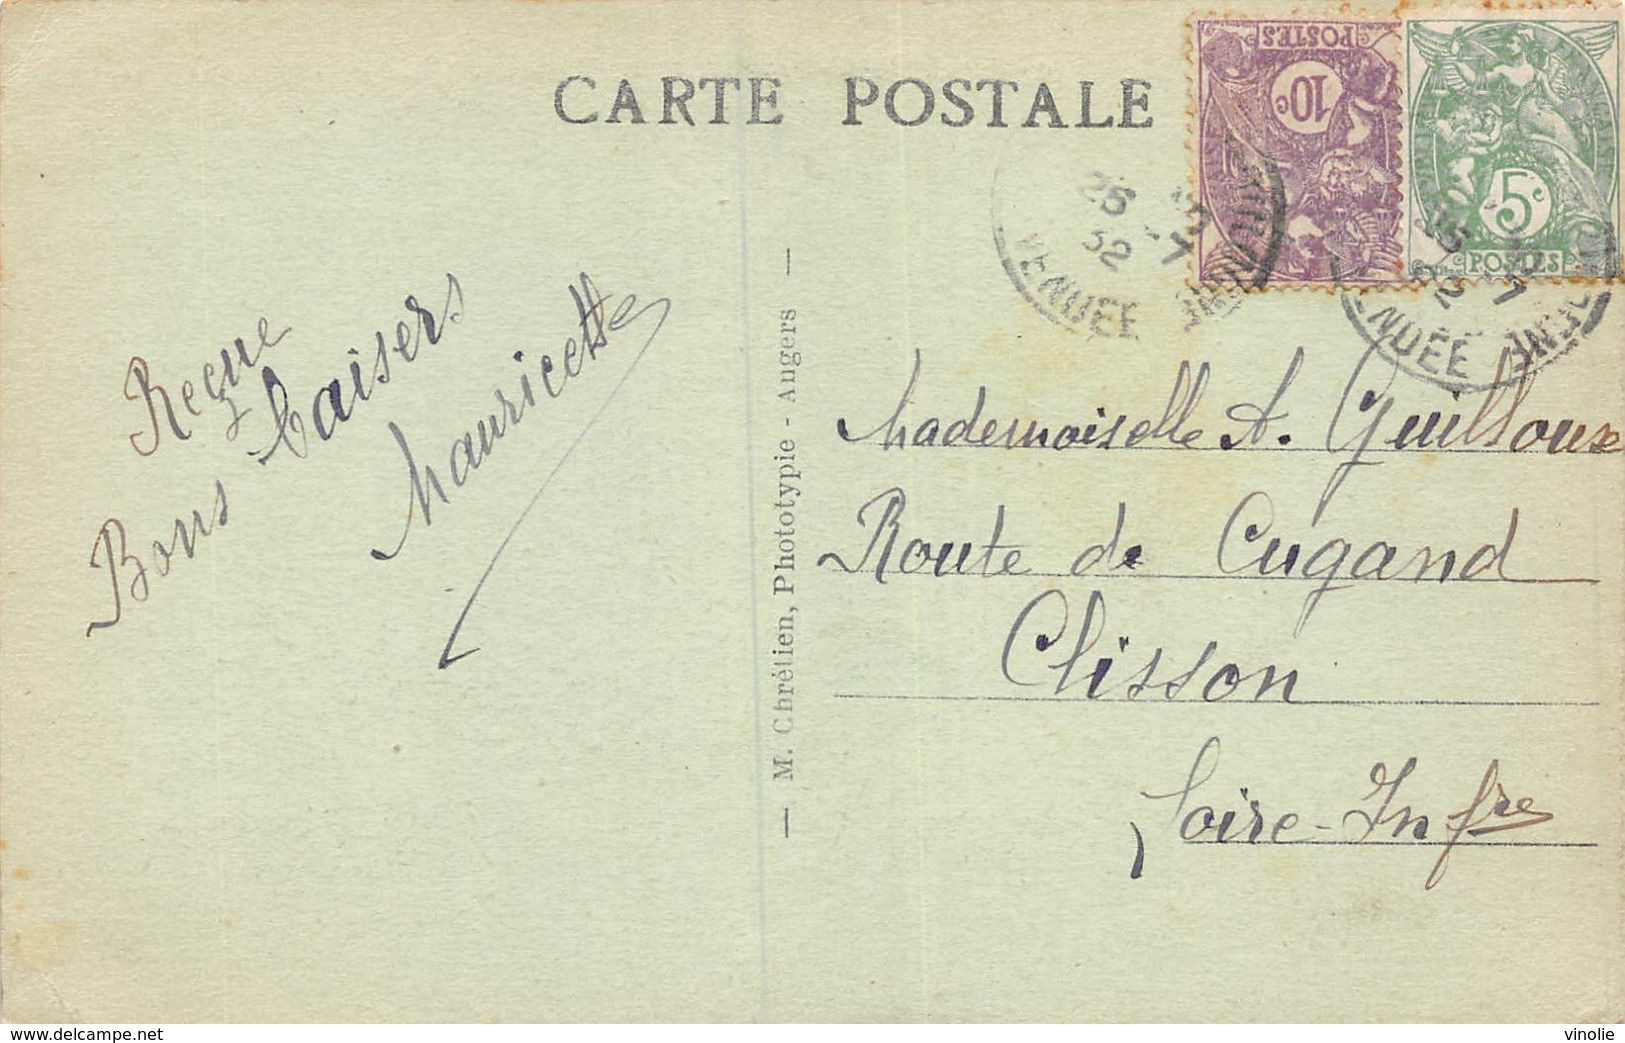 CARTE POSTALE
POSTES
10c
5c
POSTES
26
32
VENDÉE
NDÉE
Reçue
Bons baisers
Mauricette
— M. Chrétien, Phototypie - Angers —
Mademoiselle A. Guilloux
Route de Cugand
Clisson
Loire-Infre
www.delcampe.net
vinolie